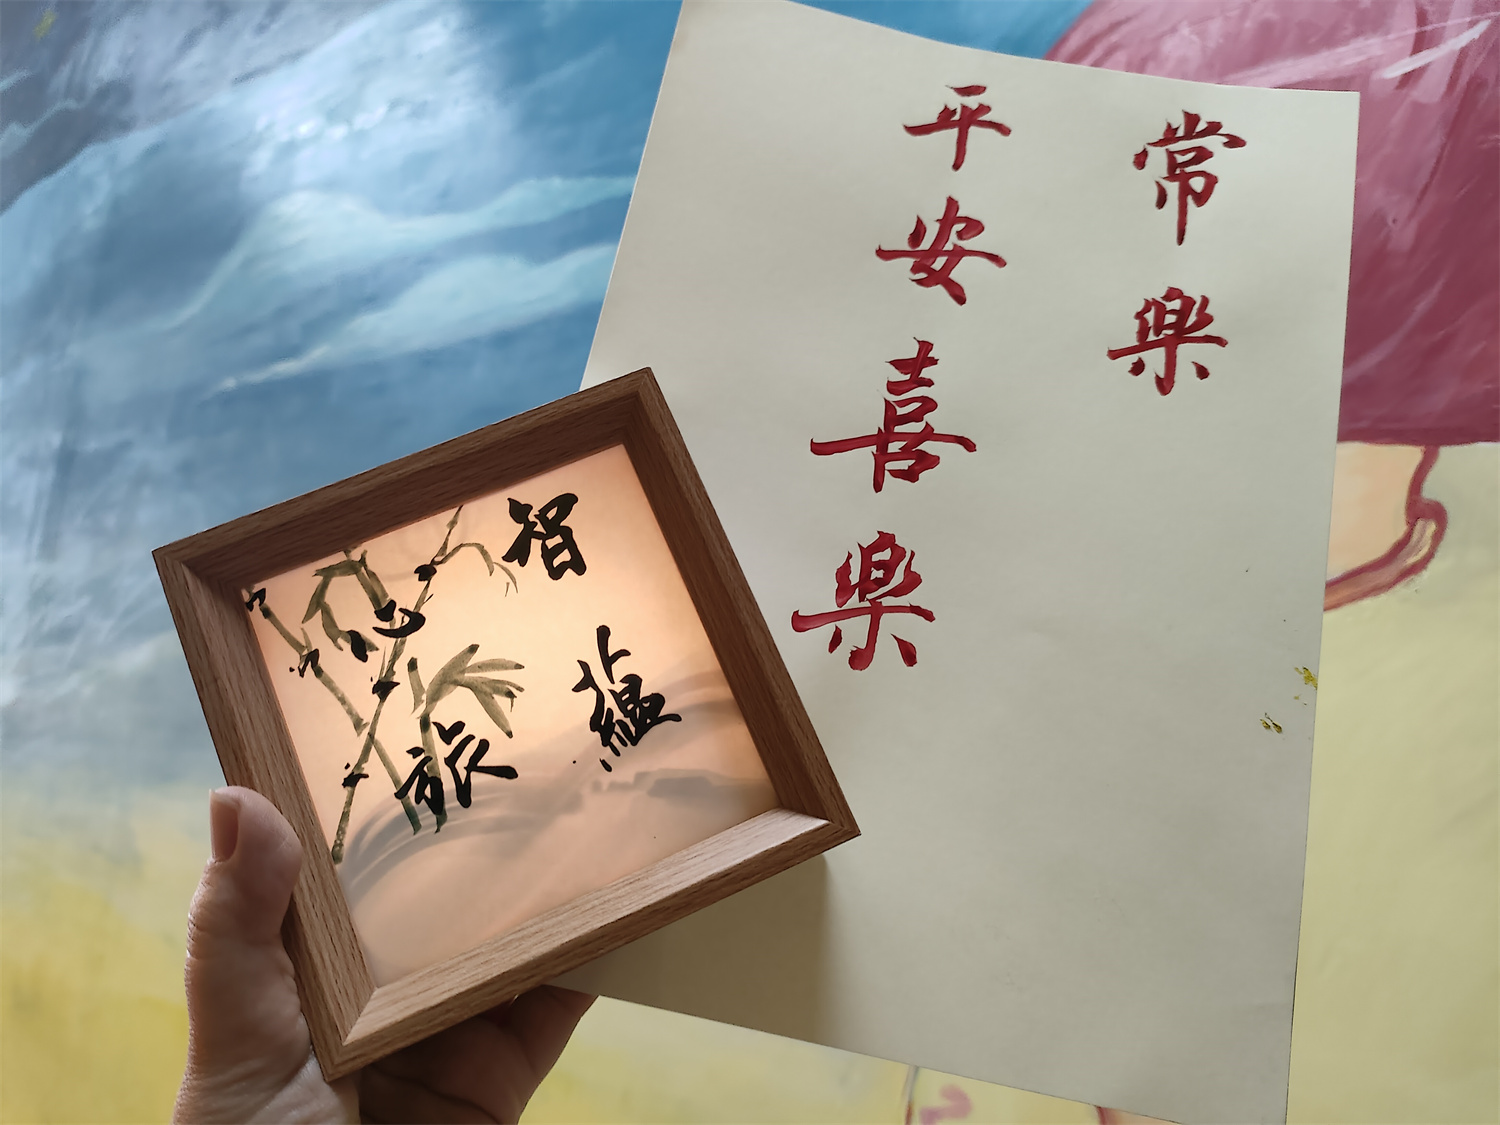 常樂
平安喜樂
智蘊
心旅